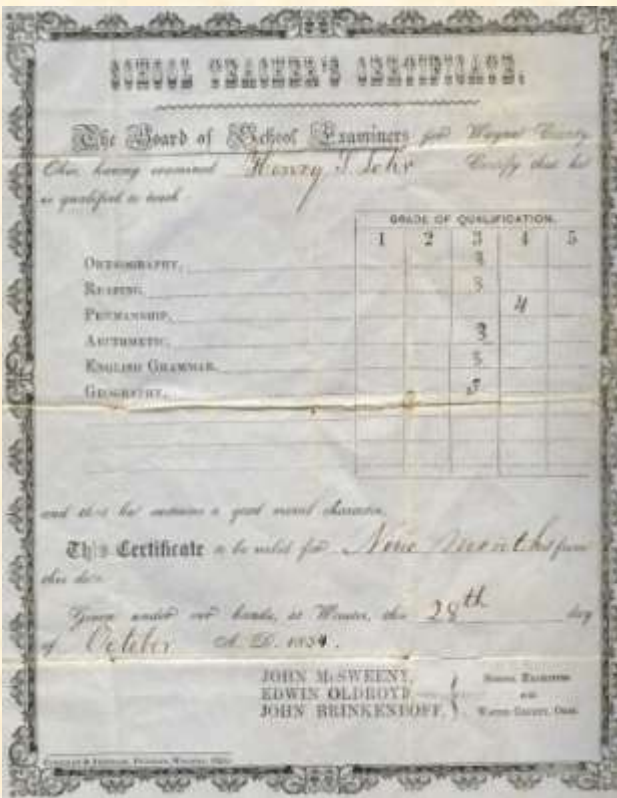 SCHOOL TEACHER'S CERTIFICATE.
The Board of School Examiners for Wayne County
Ohio, having examined Henry S. Lehr Certify that he
is qualified to teach
GRADE OF QUALIFICATION.
1 2 3 4 5
ORTHOGRAPHY, 3
READING, 3
PENMANSHIP, 4
ARITHMETIC, 3
ENGLISH GRAMMAR, 3
GEOGRAPHY, 3
and that he sustains a good moral character.
This Certificate to be valid for Nine Months from
this date.
Given under our hands, at Wooster, this 28th day
of October A. D. 1854.
JOHN McSWEENY,
EDWIN OLDROYD,
JOHN BRINKENHOFF,
SCHOOL EXAMINERS
FOR
WAYNE COUNTY, OHIO.
PRINTERS, WOOSTER, OHIO.